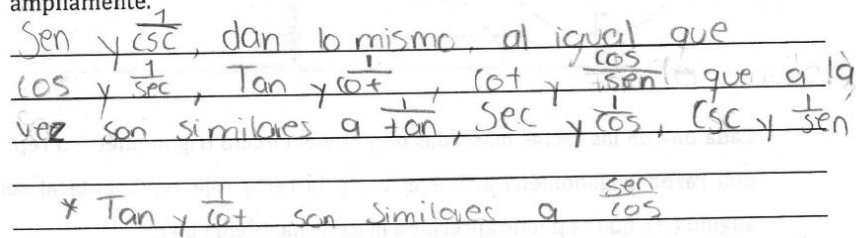 ampliamente.
Sen y 1/csc, dan lo mismo, al igual que
cos y 1/sec, Tan y 1/cot, cot y cos/sen que a la
vez son similares a 1/tan, Sec y 1/cos, Csc y 1/sen
* Tan y 1/cot son similares a sen/cos